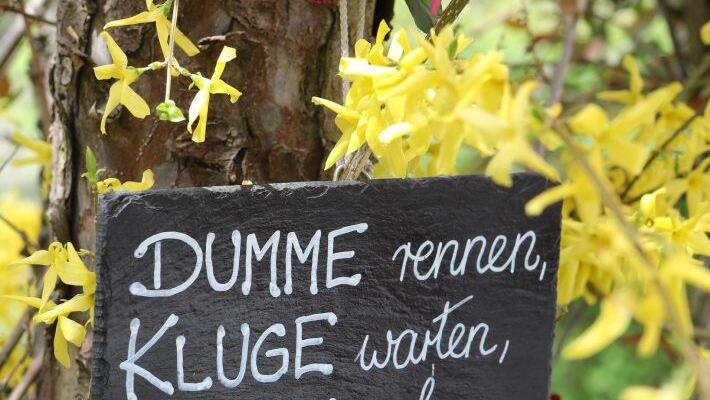 DUMME rennen,
KLUGE warten,